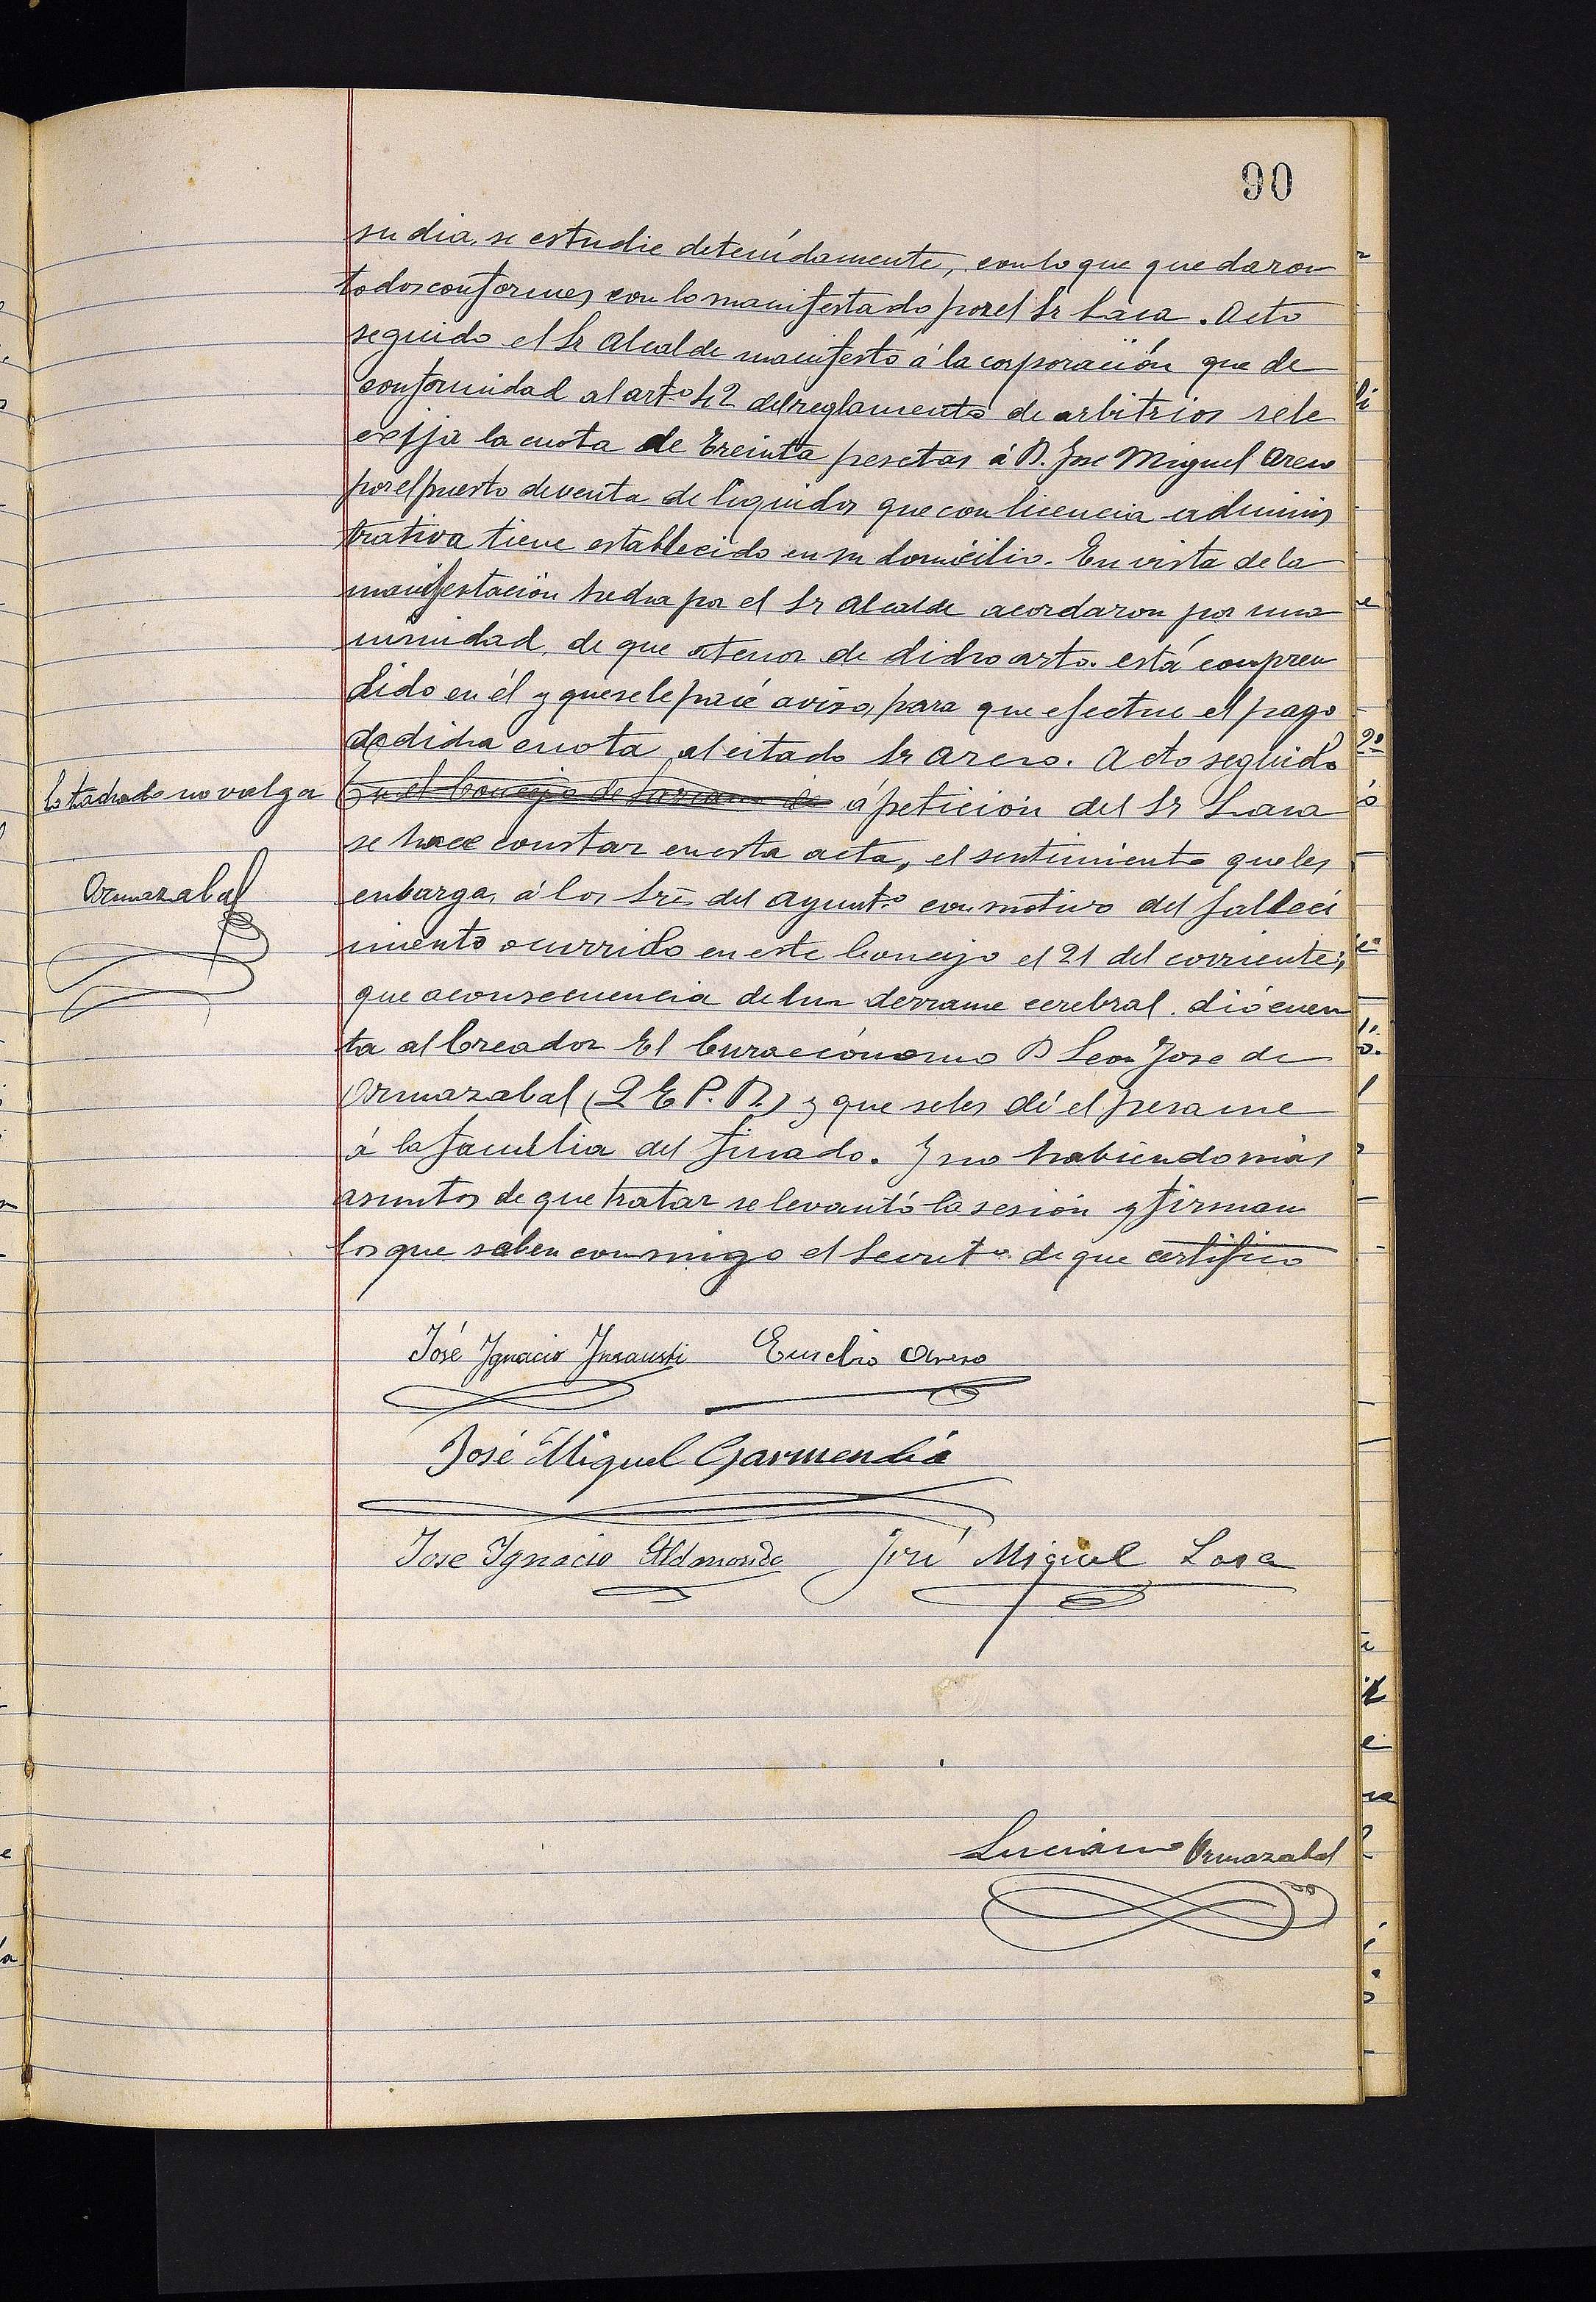 90
su dia, se estudie detenidamente, con lo que quedaron
todos conformes con lo manifestado por el Sr Lasa. Acto
seguido el Sr Alcalde manifestó á la corporación que de
conformidad al artº 42 del reglamento de arbitrios se le
exija la cuota de treinta pesetas á D. Jose Miguel Areso
por el puesto de venta de liquidos que con licencia adminis
trativa tiene establecido en su domicilio. En vista de la
manifestación hecha por el Sr Alcalde acordaron por una
nimidad, de que atenor de dicho arto. está compren
dido en él y que se le pasé aviso, para que efectue el pago
de dicha cuota al citado Sr Areso. Acto seguido
lo tachado no valga
En el Concejo de á petición del Sr Lasa
se hace constar en esta acta, el sentimiento que les
Ormazabal
enbarga, á los Sres del Ayuntº con motivo del falleci
miento ocurrido en este Concejo el 21 del corriente,
que aconsecuencia de un derrame cerebral dió cuen
ta al Creador El Cura ecónomo D Leon Jose de
Ormazabal (Q E P. D.) y que se les dé el pesame
á la familia del finado. Y no habiendo más
asuntos de que tratar se levantó la sesión y firman
los que saben conmigo el Secretº de que certifico
José Ignacio Insausti Eusebio Areso
José Miguel Garmendia
Jose Ignacio José Miguel Lasa
Luciano Ormazabal